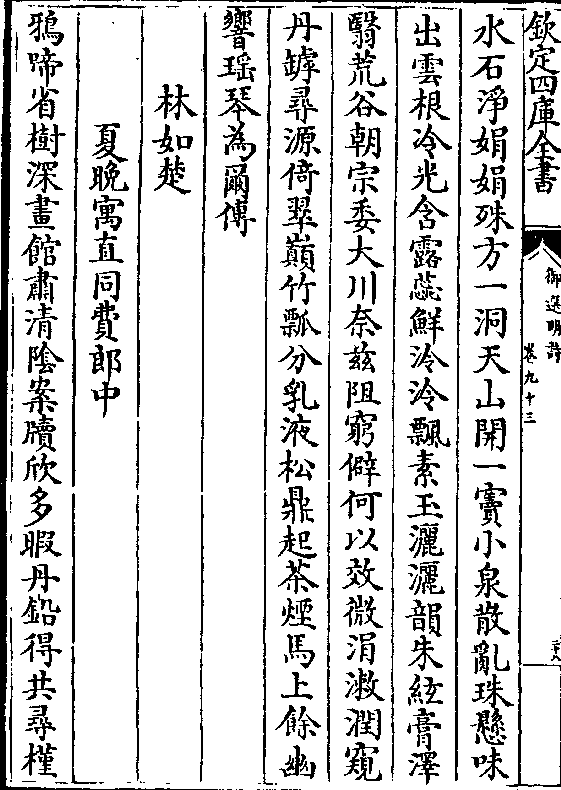 欽定四庫全書
御選明詩
卷九十三
二十八
水石淨娟娟殊方一洞天山開一竇小泉散亂珠懸味
出雲根冷光含露蕊鮮泠泠飄素玉灑灑韻朱絃膏澤
翳荒谷朝宗委大川奈兹阻窮僻何以效微涓潄潤窺
丹罅尋源倚翠巔竹瓢分乳液松鼎起茶煙馬上餘幽
響瑶琴為爾傳
林如楚
夏晚寓直同費郎中
鴉啼省樹深畫館肅清陰案牘欣多暇丹鉛得共尋槿